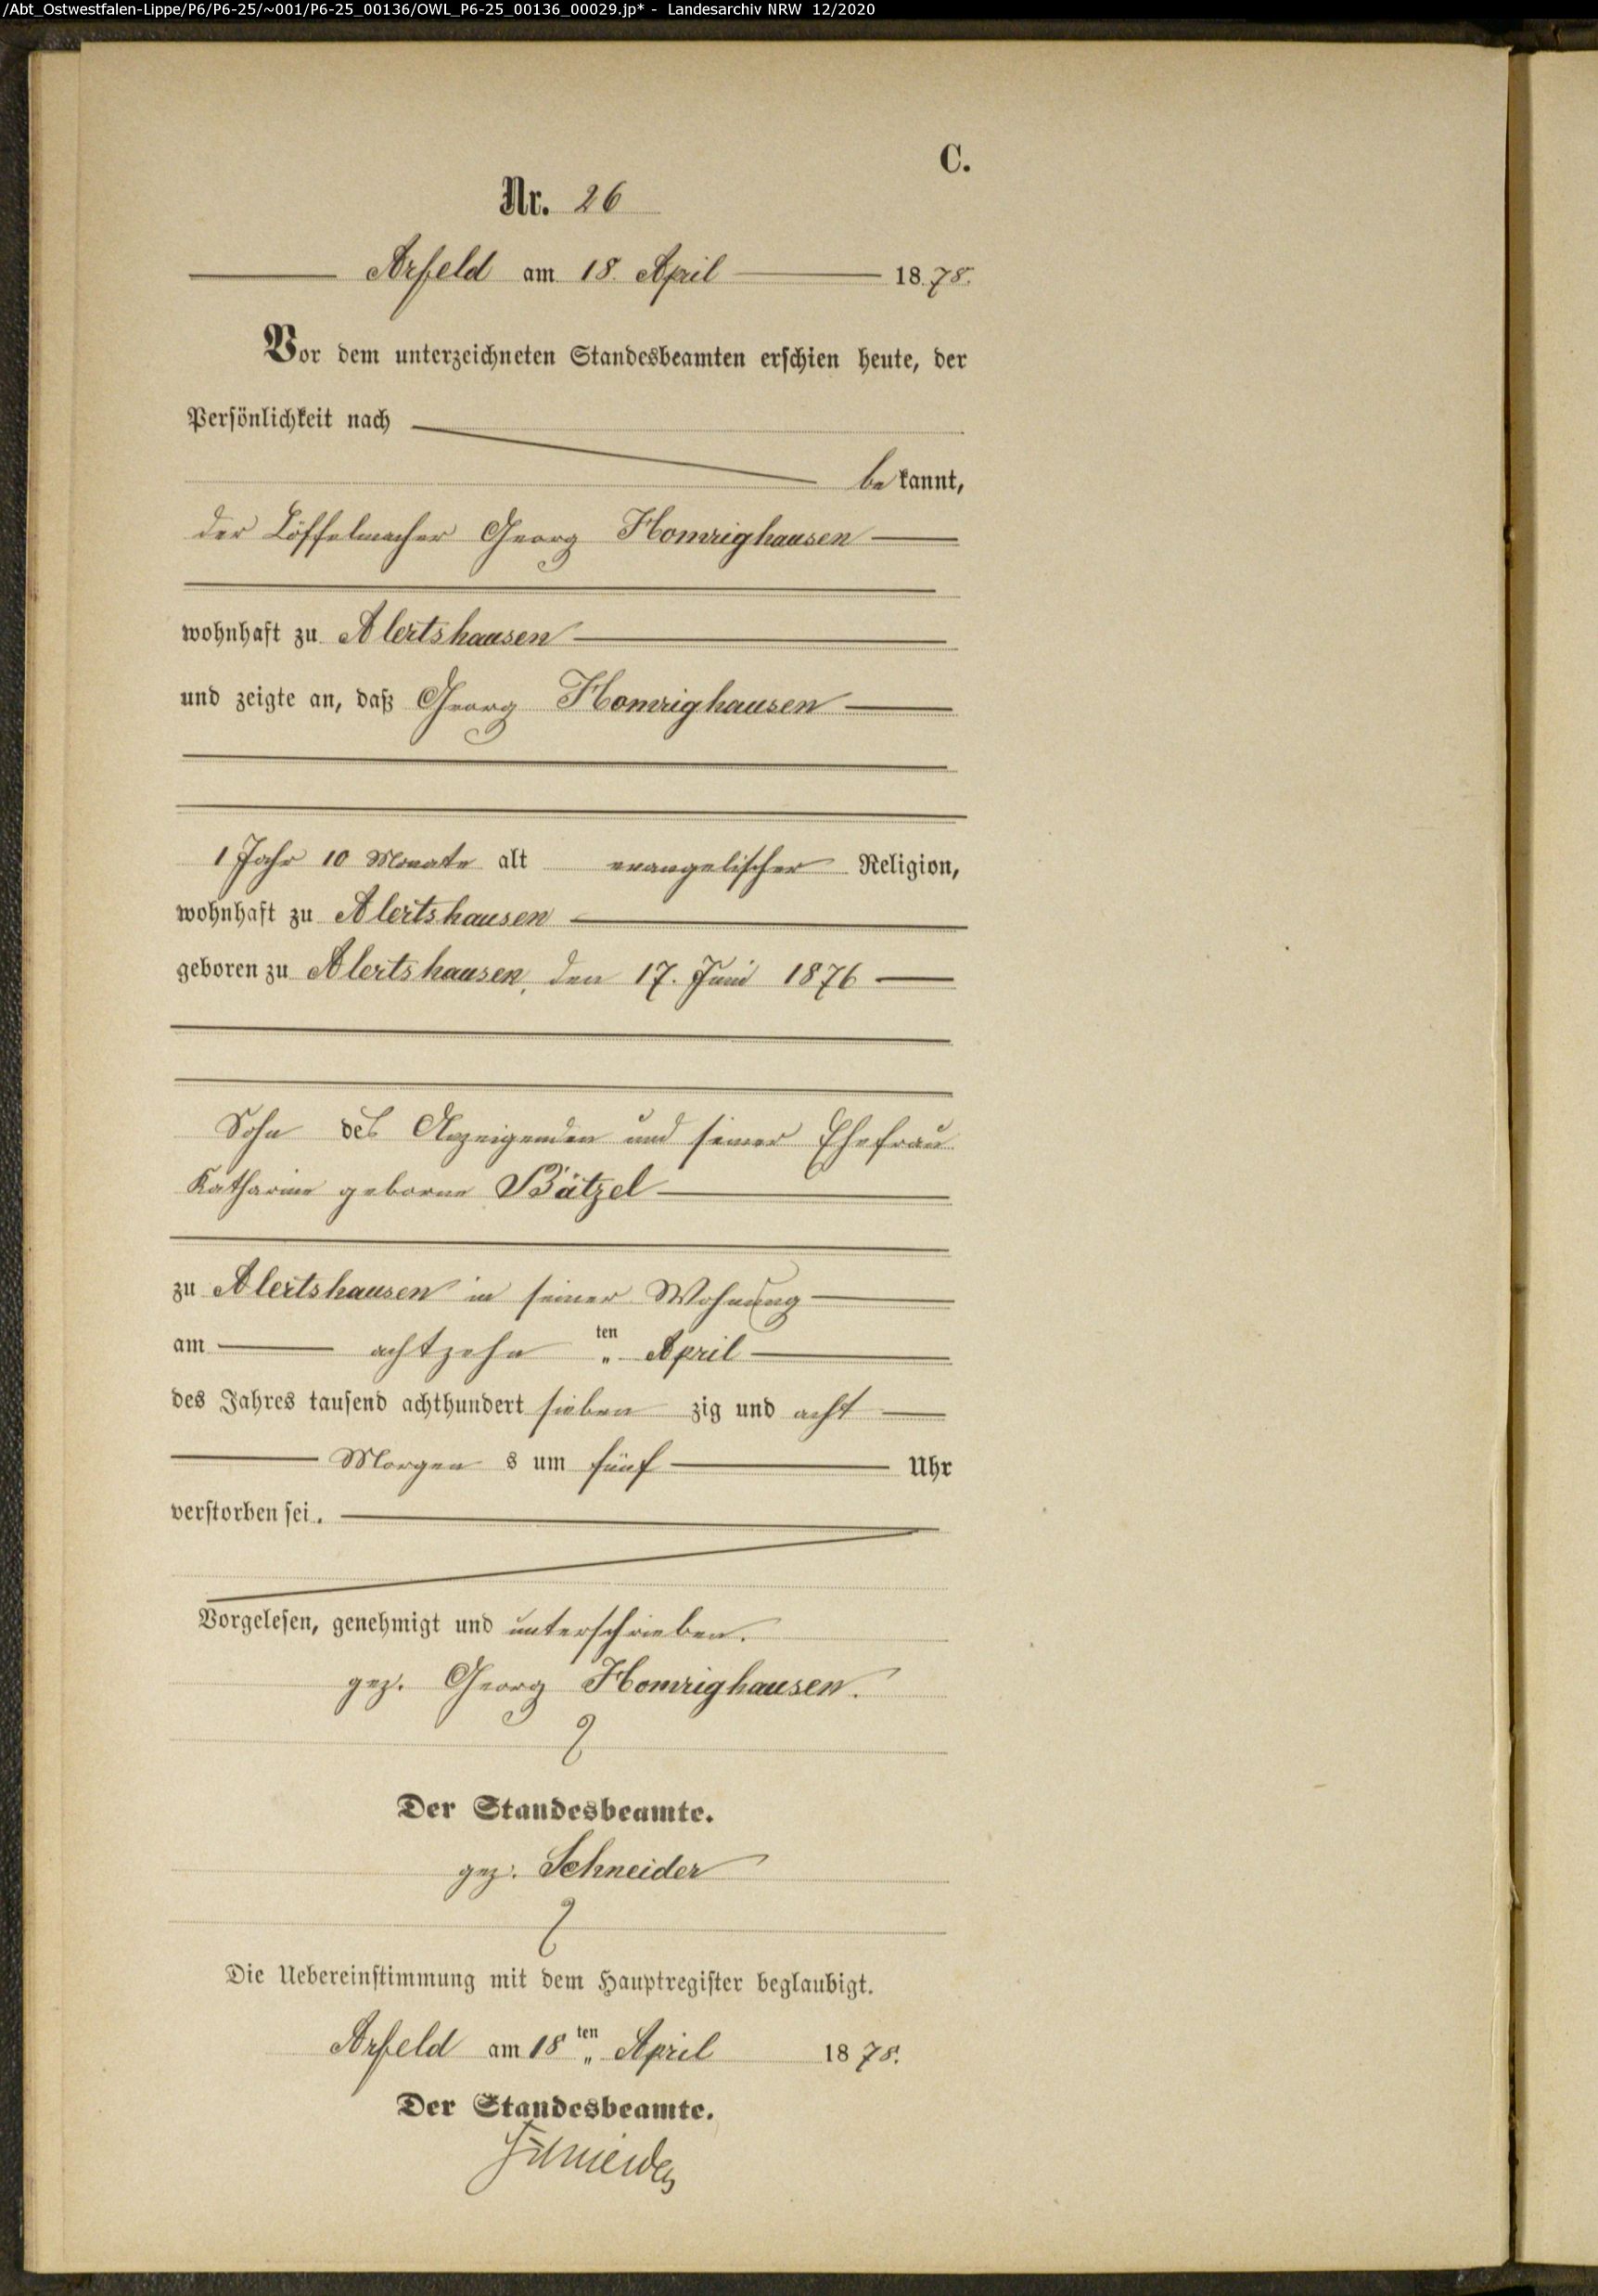 /Abt_Ostwestfalen-Lippe/P6/P6-25/~001/P6-25_00136/OWL_P6-25_00136_00029.jp* - Landesarchiv NRW 12/2020
C.
Nr. 26
Arfeld am 18. April 1878.
Vor dem unterzeichneten Standesbeamten erschien heute, der
Persönlichkeit nach
bekannt,
der Löffelmacher Georg Homrighausen
wohnhaft zu Alertshausen
und zeigte an, daß Georg Homrighausen
1 Jahr 10 Monate alt evangelischer Religion,
wohnhaft zu Alertshausen
geboren zu Alertshausen, den 17. Juni 1876
Sohn des Anzeigenden und seiner Ehefrau
Katharine geborne Bätzel
zu Alertshausen in seiner Wohnung
am achtzehn ten April
des Jahres tausend achthundert siebenzig und acht
Morgens um fünf Uhr
verstorben sei.
Vorgelesen, genehmigt und unterschrieben.
gez. Georg Homrighausen.
Der Standesbeamte.
gez. Schneider
Die Uebereinstimmung mit dem Hauptregister beglaubigt.
Arfeld am 18ten April 1878.
Der Standesbeamte.
Schneider